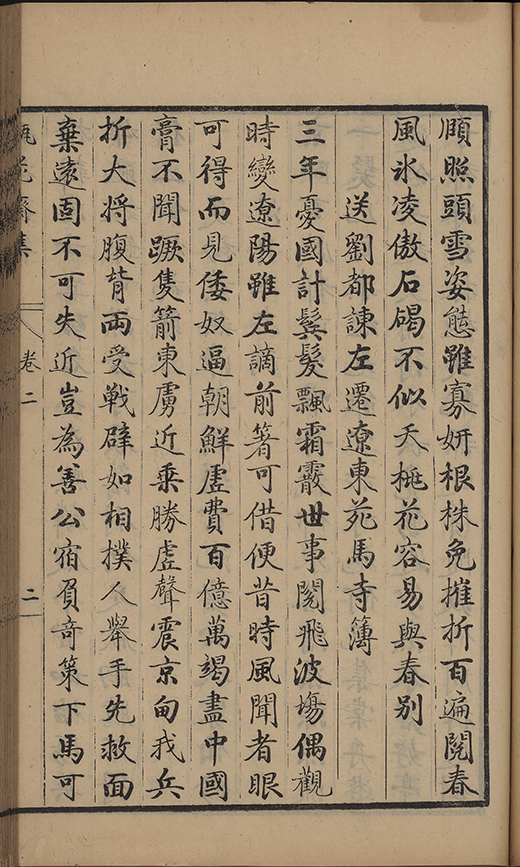 頎照頭雪姿態雖寡妍根株免摧折百遍閱春
風氷凌傲石碣不似夭桃花容易與春别
送劉都諫左遷遼東苑馬寺簿
三年憂國計鬓髮飄霜霰世事閱飛波塲偶觀
時變遼陽雖左謫前箸可借便昔時風聞者眼
可得而見倭奴逼朝鮮虛費百億萬竭盡中國
膏不聞蹶隻箭東虜近乗勝虛聲震京甸我兵
折大将腹背两受戦辟如相撲人舉手先救面
棄遠固不可失近豈為善公宿負奇策下馬可
瓶花齋集
卷二
二